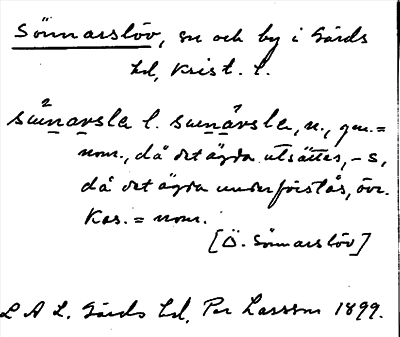 Sönnarslöv, sn och by i Gärds
hd, Krist. l.
sùnarsla l. sunàrsla, n., gen. =
nom., då det ägda utsättes, -s,
då det ägda underförstås, övr.
Kas. = nom.
[Ö. Sönnarslöv]
L A L. Gärds hd, Per Larsson 1899.